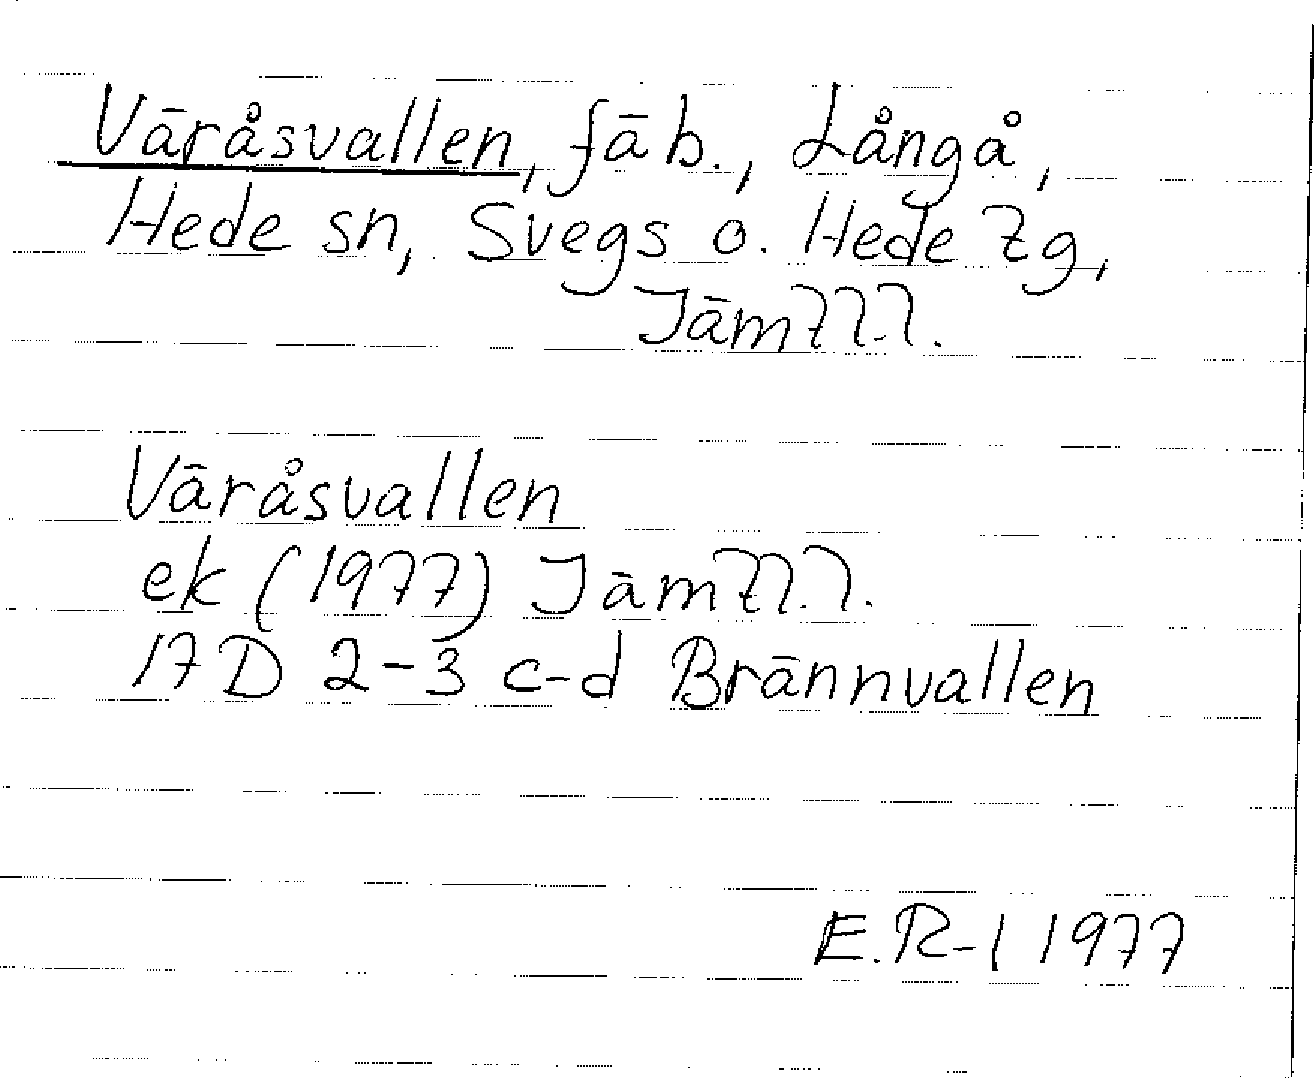 Väråsvallen, fäb., Långå,
Hede sn, Svegs o. Hede tg,
Jämtl.l.
Väråsvallen
ek (1977) Jämtl.l.
17D 2-3 c-d Brännvallen
E.R-l 1977